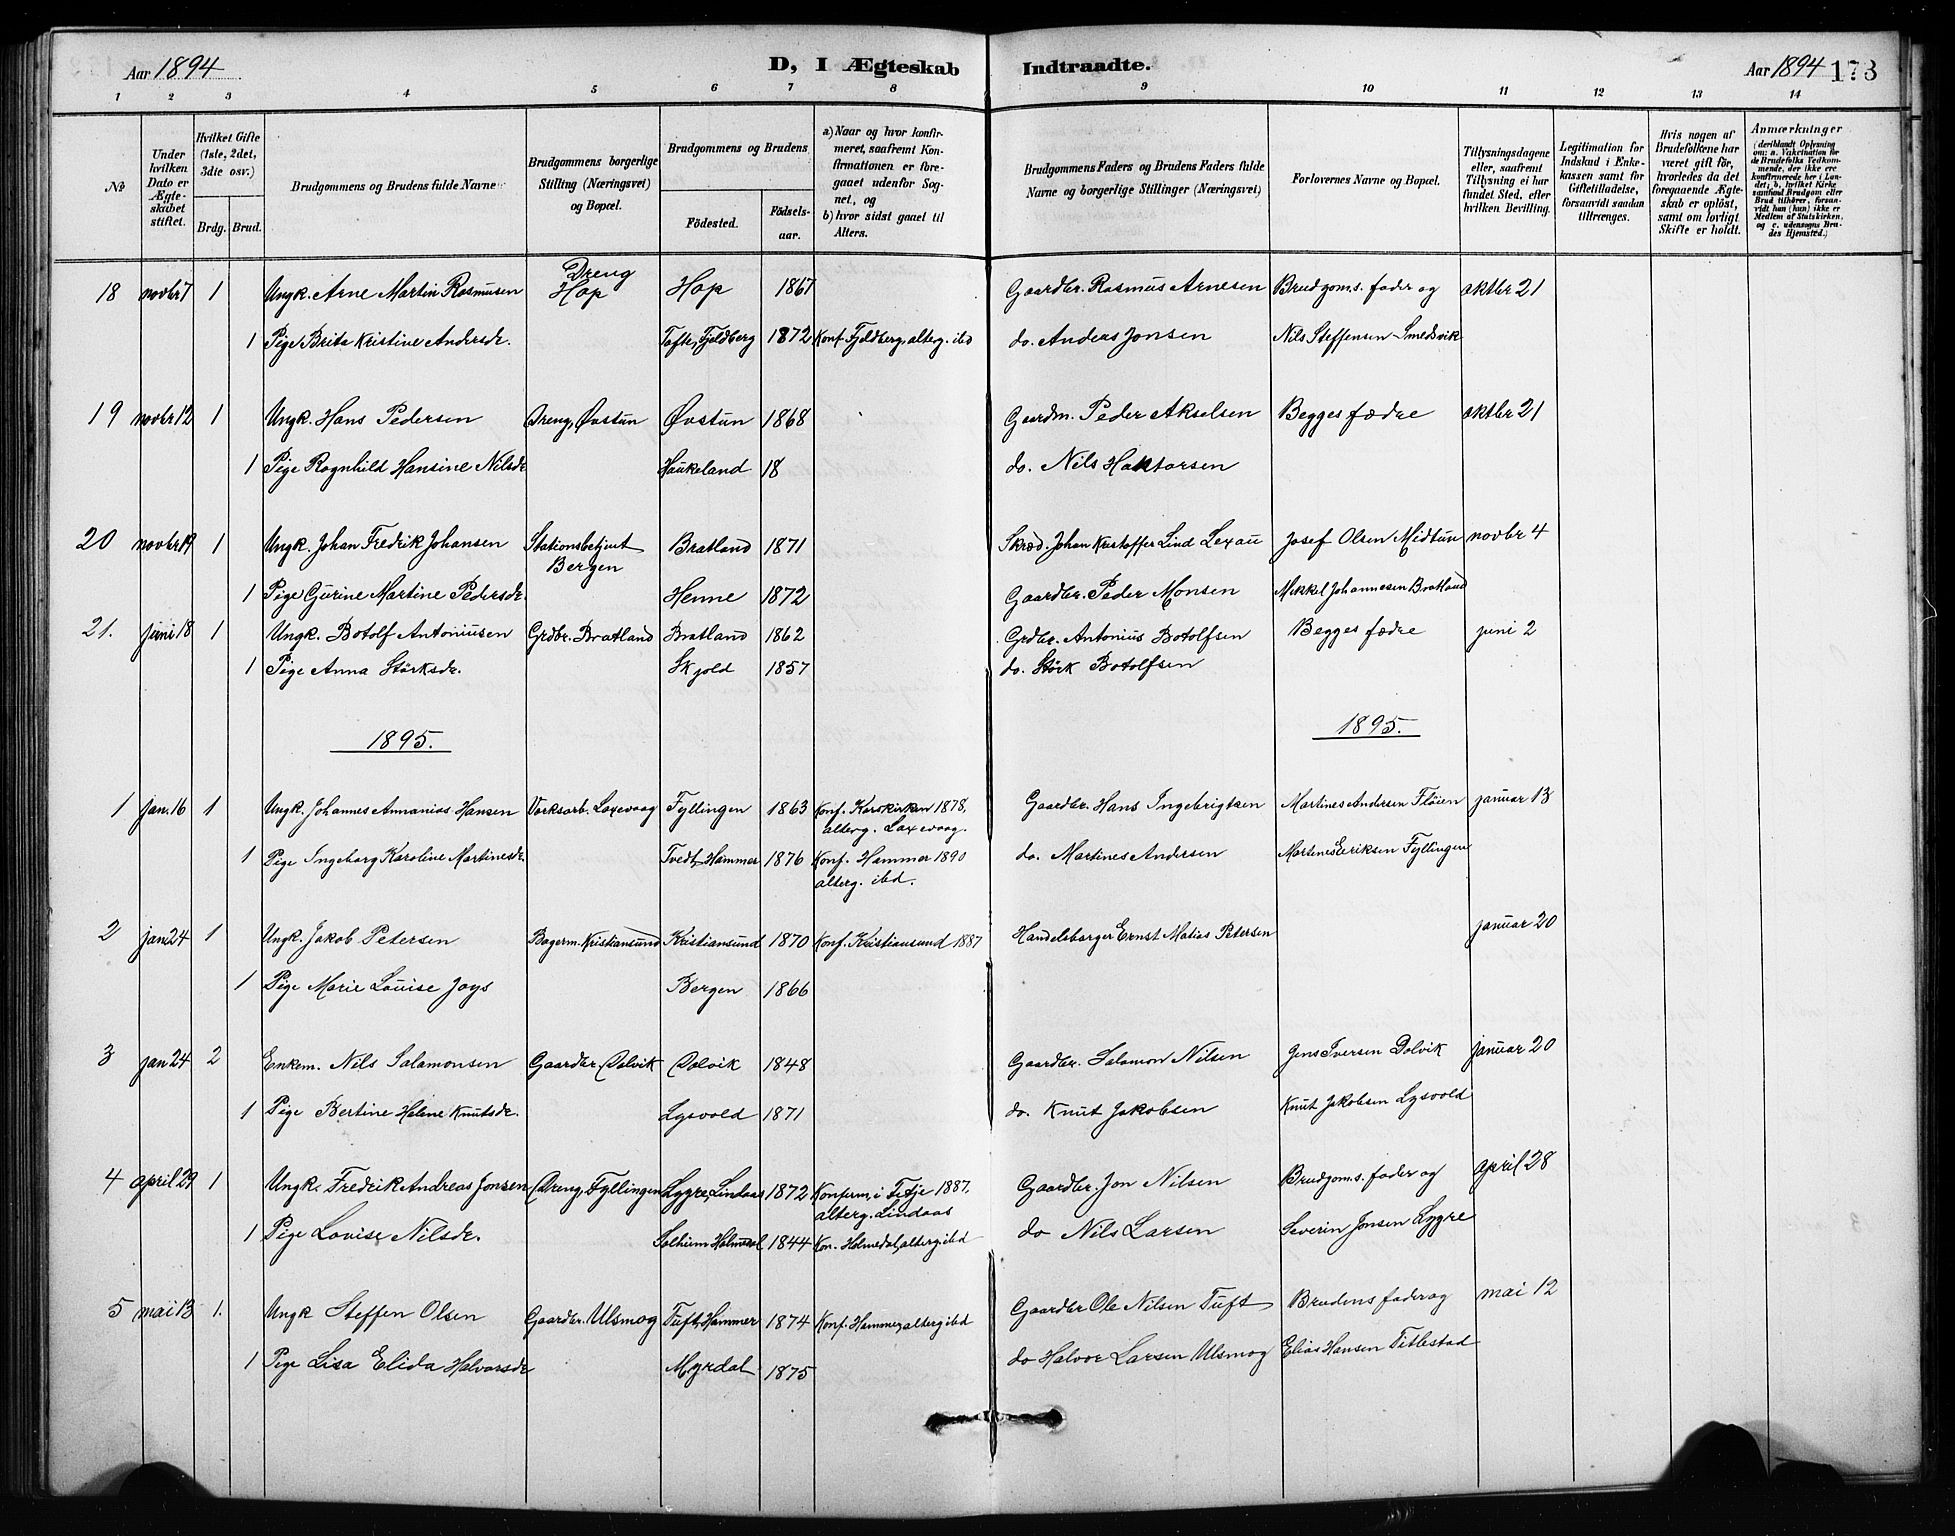 Aar 1894
D, I Ægteskab Indtraadte.
Aar 1894 173
1 2 3 4 5 6 7 8 9 10 11 12 13 14
№
Under hvilken Dato er Ægteskabet stiftet.
Hvilket Gifte (1ste, 2det, 3die osv.)
Brdg. Brud.
Brudgommens og Brudens fulde Navne
Brudgommens borgerlige Stilling (Næringsvei) og Bopæl.
Brudgommens og Brudens
Fødested.
Fødselsaar.
a) Naar og hvor konfirmeret, saafremt Konfirmationen er foregaaet udenfor Sognet, og
b) hvor sidst gaaet til Alters.
Brudgommens Faders og Brudens Faders fulde Navne og borgerlige Stillinger (Næringsvei)
Forlovernes Navne og Bopæl.
Tillysningsdagene eller, saafremt Tillysning ei har fundet Sted, efter hvilken Bevilling.
Legitimation for Indskud i Enkekassen samt for Giftetilladelse, forsaavidt saadan tiltrænges.
Hvis nogen af Brudefolkene har været gift før, hvorledes da det foregaaende Ægteskab er opløst, samt om lovligt Skifte er holdt.
Anmærkninger (deriblandt Oplysning om: a. Vakcination for de Brudefolks Vedkommende, der ikke ere konfirmerede her i Landet; b. hvilket Kirkesamfund Brudgom eller Brud tilhører, forsaavidt han (hun) ikke er Medlem af Statskirken, og c. udensogns Brudes Hjemsted.)
18 novbr 7 1 Ungk. Arne Martin Rasmusen Dreng Hop Hop 1867 Gaardbr. Rasmus Arnesen Brudgoms. fader og oktbr 21
1 Pige Brita Kristine Andersdr. Tofte, Fjeldberg 1872 Konf. Fjeldberg, alterg. ibd do. Andeas Jonsen Nils Steffensen Smedsvik
19 novbr 12 1 Ungk. Hans Pedersen Dreng, Øvstun Øvstun 1868 Gaardm. Peder Akselsen Begges fædre oktbr 21
1 Pige Ragnhild Hansine Nilsdr Haukeland 18 do. Nils Haktorsen
20 novbr 19 1 Ungk. Johan Fredrik Johansen Stationsbetjent Bergen Bratland 1871 Skræd. Johan Kristoffer Lind Lexau Josef Olsen Midtun novbr 4
1 Pige Gurine Martine Pedersdr. Henne 1872 Gaardbr. Peder Monsen Mikkel Johannesen Bratland
21. juni 18 1 Ungk. Botolf Antoniusen Grdbr. Bratland Bratland 1862 Grdbr. Antonius Botolfsen Begges fædre juni 2
1 Pige Anna Störksdr. Skjold 1857 do. Störk Botolfsen
1895. 1895.
1 jan. 16 1 Ungk. Johannes Annanias Hansen Værksarb. Laxevaag Fyllingen 1863 Konf. Korskirken 1878, alterg. Laxevaag. Gaardbr. Hans Ingebrigtsen Martines Andersen Fløien januar 13
1 Pige Ingeborg Karoline Martinesdr. Tvedt, Hammer 1876 Konf. Hammer 1890 alterg. ibd. do. Martines Andersen Martines Eriksen Fyllingen
2 jan 24 1 Ungk. Jakob Petersen Bagerm. Kristiansund Kristiansund 1870 Konf. Kristiansund 1887 Handelsborger Ernst Matias Petersen januar 20
1 Pige Marie Louise Joys Bergen 1866
3 jan 24 2 Enkem. Nils Salamonsen Gaardbr. Dolvik Dolvik 1848 Gaardbr. Salamon Nilsen Jens Iversen Dolvik januar 20
1 Pige Bertine Helene Knutsdr. Lysvold 1871 do. Knut Jakobsen Knut Jakobsen Lysvold
4 april 29 1 Ungk. Fredrik Andreas Jonsen Dreng, Fyllingen Lygre, Lindaas 1872 Konferm, i Fitje 1887, alterg. Lindaas Gaardbr. Jon Nilsen Brudgoms. fader og april 28
1 Pige Lovise Nilsdr. Solheim Holmedal 1844 Kon. Holmedal, alterg. ibd do Nils Larsen Severin Jonsen Lygre
5 mai 13 1. Ungk Steffen Olsen Gaardbr. Ulsmog Tuft, Hammer 1874 Konf. Hammer, alterg ibd Gaardbr Ole Nilsen Tuft Brudens fader og mai 12
1 Pige Lisa Elida Halvorsdr Myrdal 1875 do Halvor Larsen Ulsmog Elias Hansen Titlestad